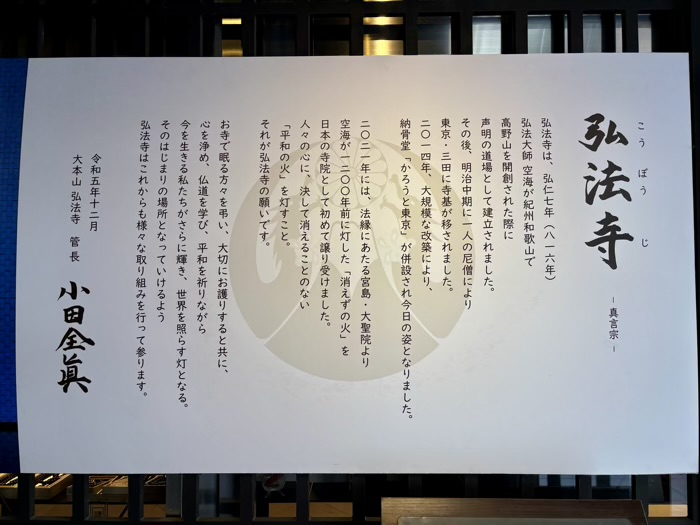 こうぼうじ
弘法寺
－真言宗－
弘法寺は、弘仁七年（八一六年）
弘法大師 空海が紀州和歌山で
高野山を開創された際に
声明の道場として建立されました。
その後、明治中期に一人の尼僧により
東京・三田に寺基が移されました。
二〇一四年、大規模な改築により、
納骨堂「かろうと東京」が併設され今日の姿となりました。
二〇二一年には、法縁にあたる宮島・大聖院より
空海が一二〇〇年前に灯した「消えずの火」を
日本の寺院として初めて譲り受けました。
人々の心に、決して消えることのない
「平和の火」を灯すこと。
それが弘法寺の願いです。
お寺で眠る方々を弔い、大切にお護りすると共に、
心を浄め、仏道を学び、平和を祈りながら
今を生きる私たちがさらに輝き、世界を照らす灯となる。
そのはじまりの場所となっていけるよう
弘法寺はこれからも様々な取り組みを行って参ります。
令和五年十二月
大本山 弘法寺 管長
小田全眞